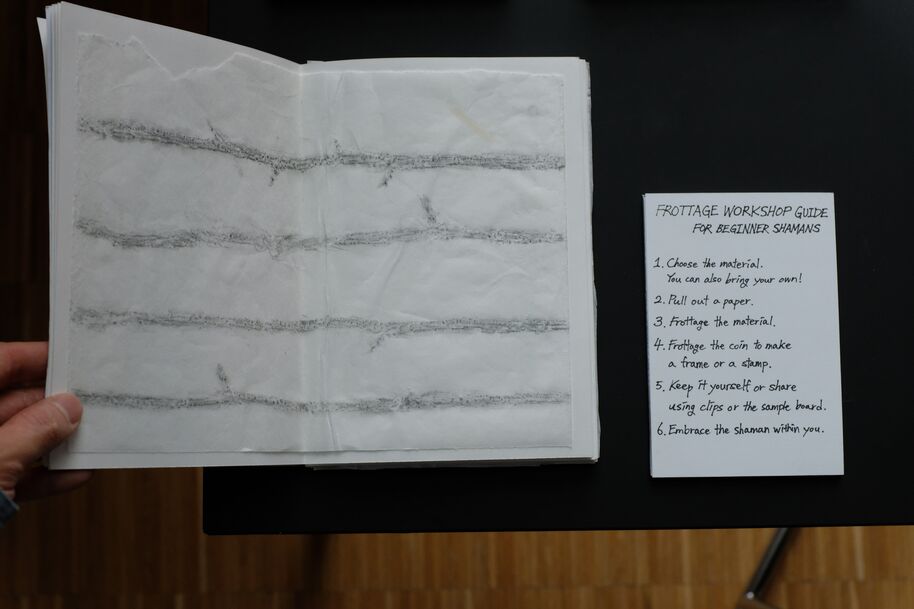 FROTTAGE WORKSHOP GUIDE
FOR BEGINNER SHAMANS
1. Choose the material.
You can also bring your own!
2. Pull out a paper.
3. Frottage the material.
4. Frottage the coin to make
a frame or a stamp.
5. Keep it yourself or share
using clips or the sample board.
6. Embrace the shaman within you.